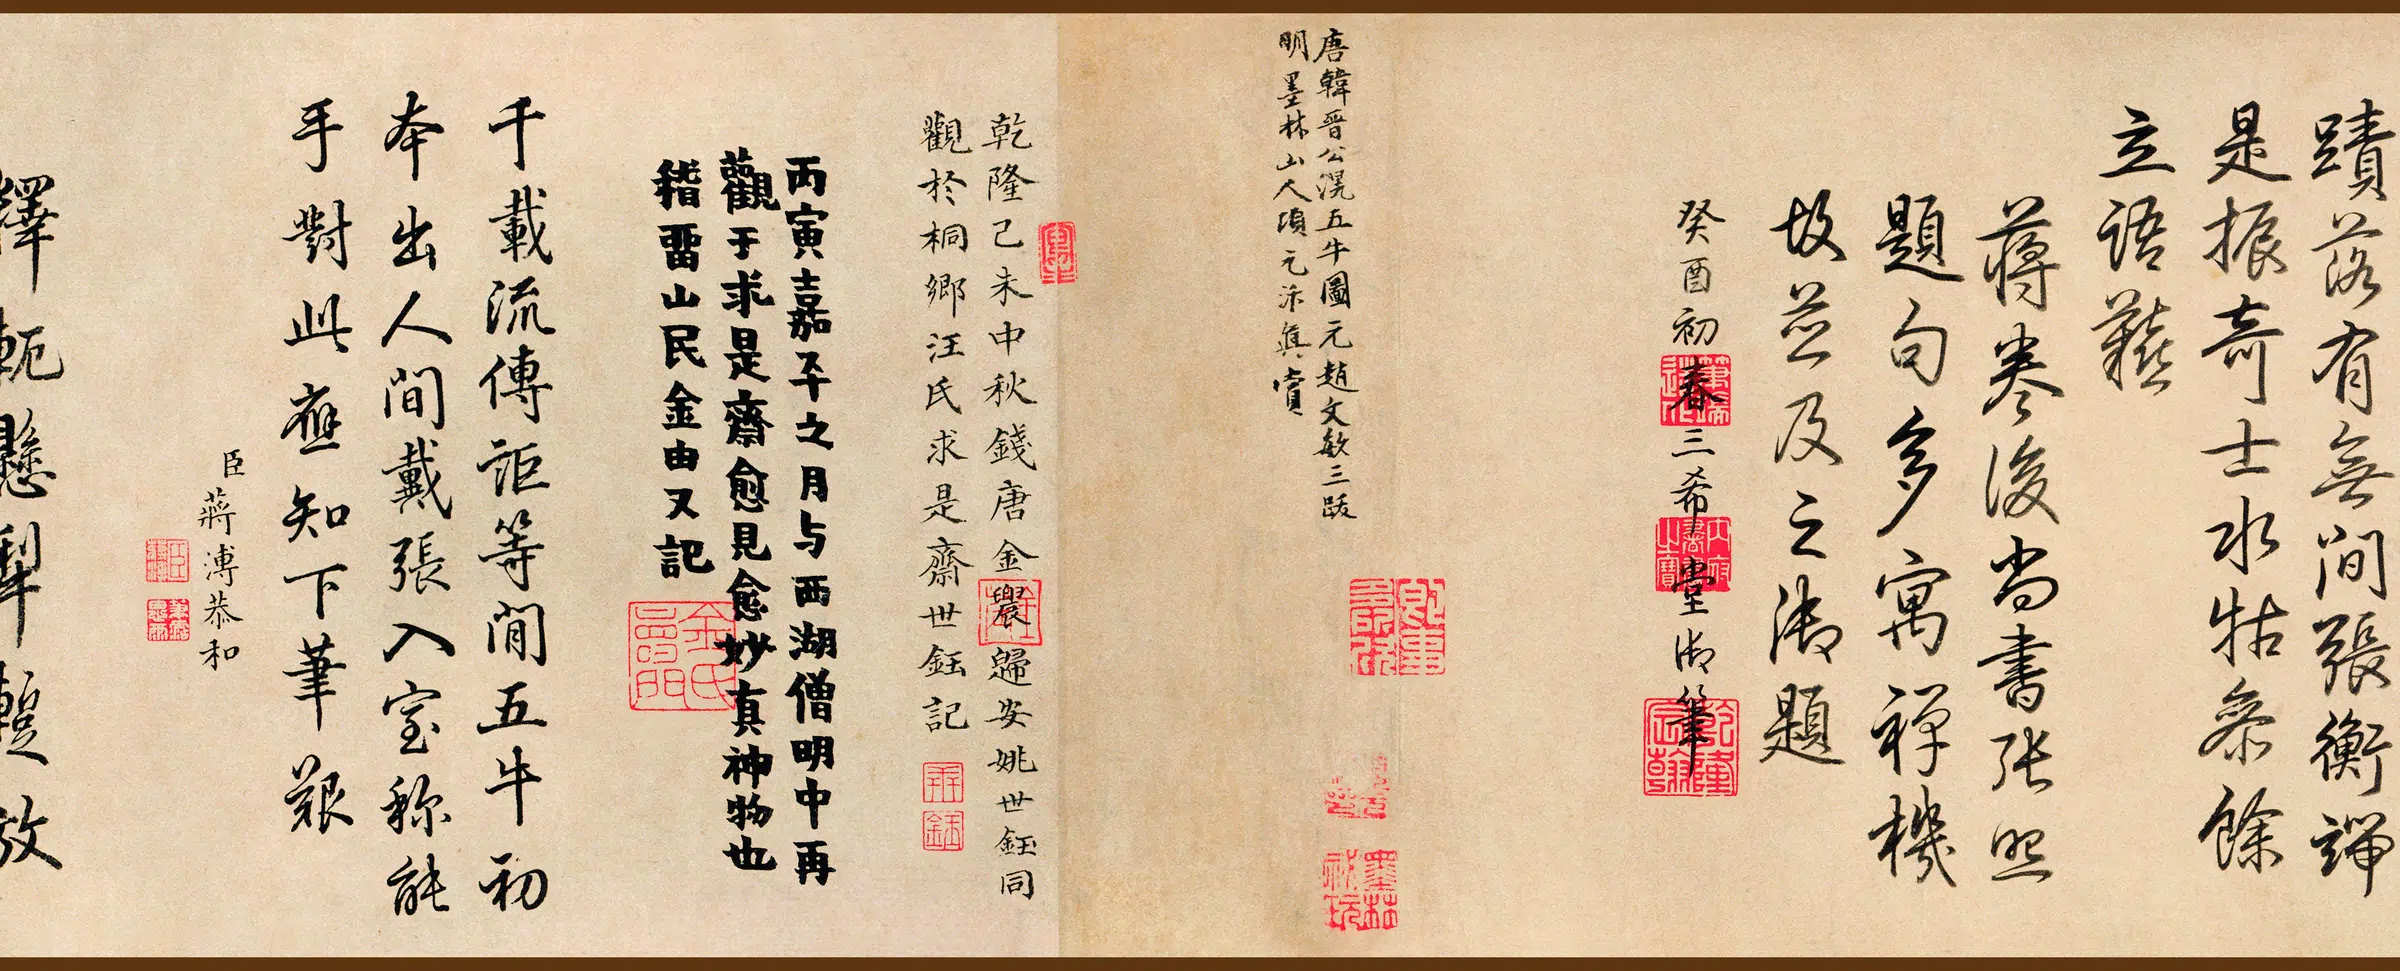 蹟落有無間張衡端
是振奇士水牯參餘
立語藂
蔣卷後尚書張照
題句多寓禪機
故並及之御題
癸酉初春三希堂御筆
唐韓晉公滉五牛圖元趙文敏三跋
明墨林山人項元汴真賞
乾隆己未中秋錢唐金農歸安姚世鈺同
觀於桐鄉汪氏求是齋世鈺記
丙寅嘉平之月与西湖僧明中再
觀于求是齋愈見愈妙真神物也
稽畱山民金由又記
千載流傳詎等閒五牛初
本出人間戴張入室称能
手對此應知下筆艱
臣蔣溥恭和
釋軛懸犁蹔放